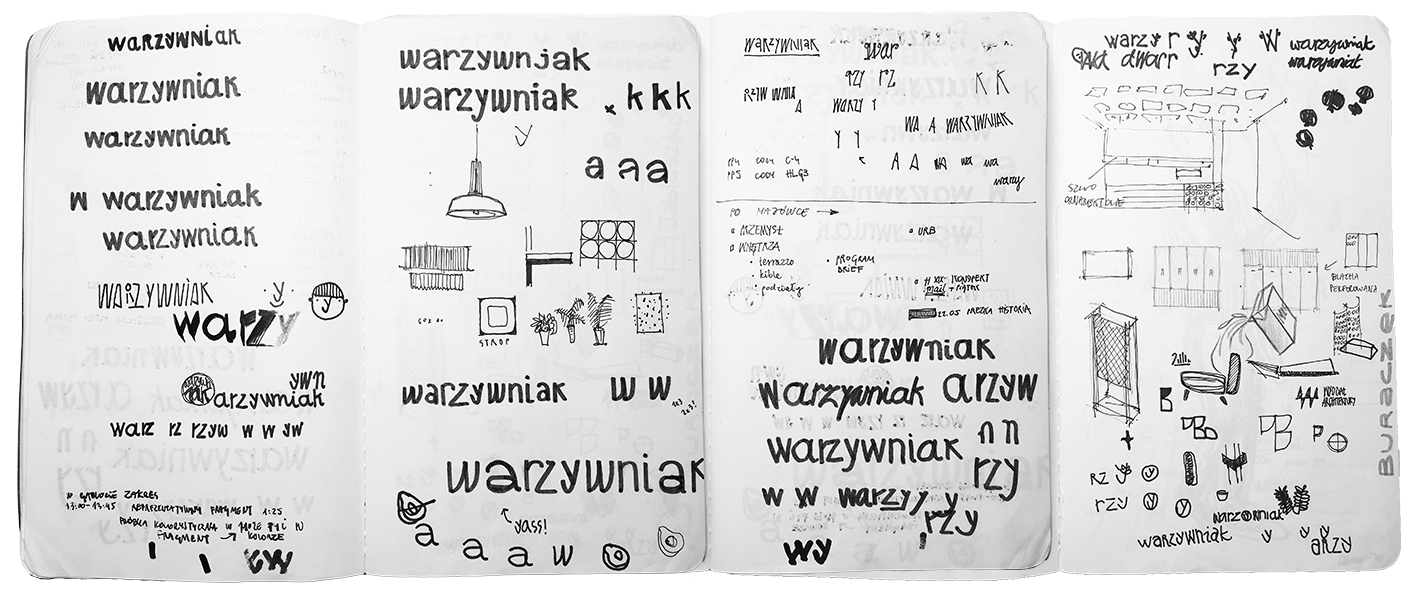 warzywniak
warzywniak
warzywniak
w warzywniak
warzywniak
WARZYWNIAK
warzy
ywn
warzywniak
warz rz rzyw w w yw
W GABLOCIE ZAKRES
13:00-13:45 REPREZENTATYWNY FRAGMENT 1:25
PRÓBKA KOLORYSTYCZNA W MOŻE BYĆ W
FRAGMENT → KOLORZE
warzywnjak
warzywniak k k k
y
a a a
STROP
warzywniak w w
warzywniak
yass!
a a a w
WARZYWNIAK
war
rzy rz
K K
RZYW WNIA
A
WARZY Y
WA A WARZYWNIAK
Y Y
A A WA wa wa
warzy
PO MAJÓWCE →
PRZEMYSŁ
URB
WNĘTRZA
• terrazzo
• PROGRAM
BRIEF
• kible
• podwały
mail
22.05 MĘZKA HISTORIA
warzywniak
warzywniak arzyw
warzywniak n n
rzy
w w warzy y y
rzy
wy
warzy r y y w
warzywniak
warzywniak
rzy
SZKŁO
ORNAMENTOWE
BLACHA
PERFOROWANA
BURACZEK
WYDZIAŁ
ARCHITEKTURY
B
P
RZ y y
rzy y y
warzywniak
warzywniak y y y
arzy